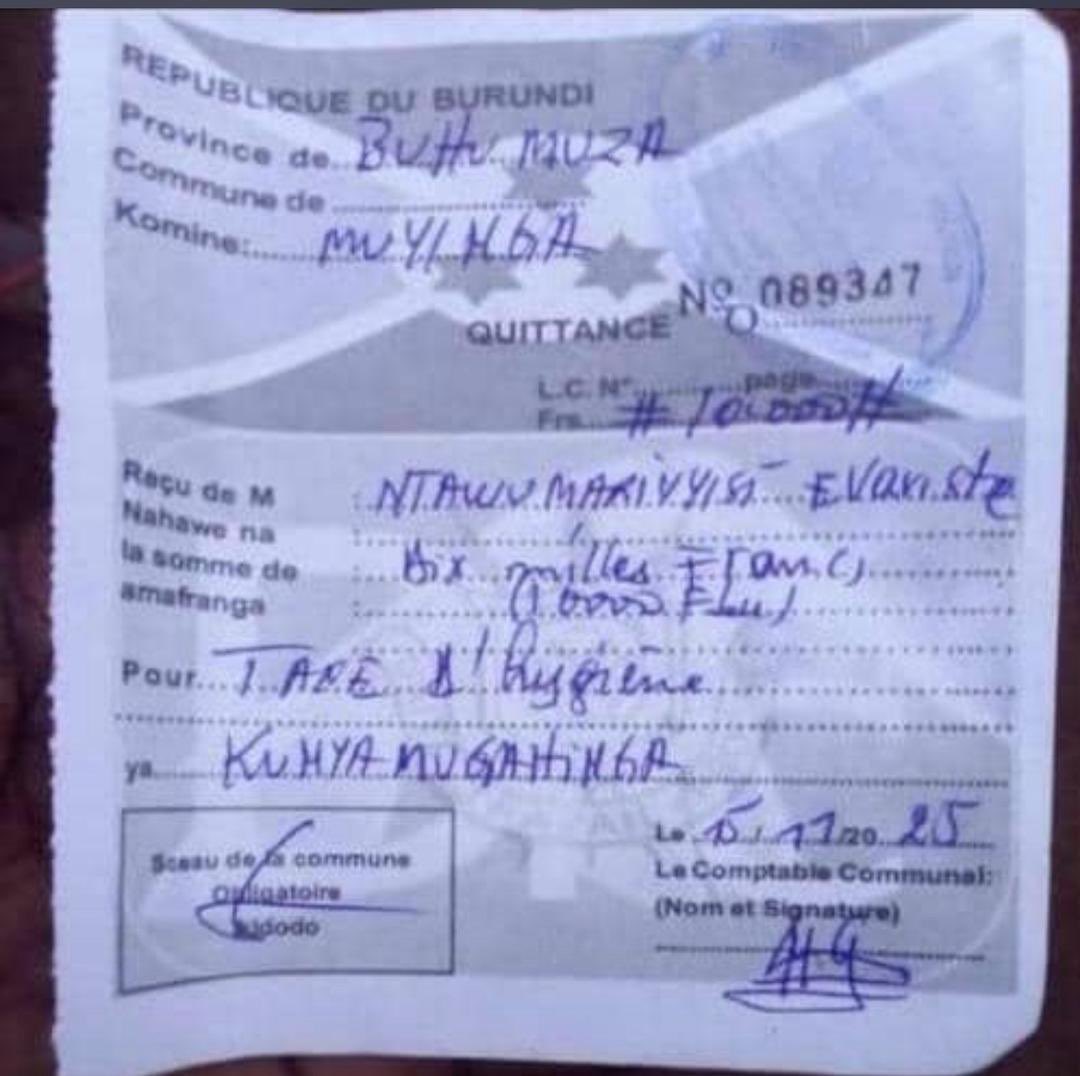 REPUBLIQUE DU BURUNDI
Province de BUHUMUZA
Commune de
Komine: MUYINGA
QUITTANCE No 089347
L.C. N° page
Frs #10.000#
Reçu de M : NTAWUMARIYYISI Evariste
Nahawe na :
la somme de : Dix milles Francs
amafranga : (10000 Fbu)
Pour TAXE d'hygiène
ya KUNYAMUGAHINGA
Sceau de la commune
Obligatoire
Kidodo
Le 15/11/2025
Le Comptable Communal:
(Nom et Signature)